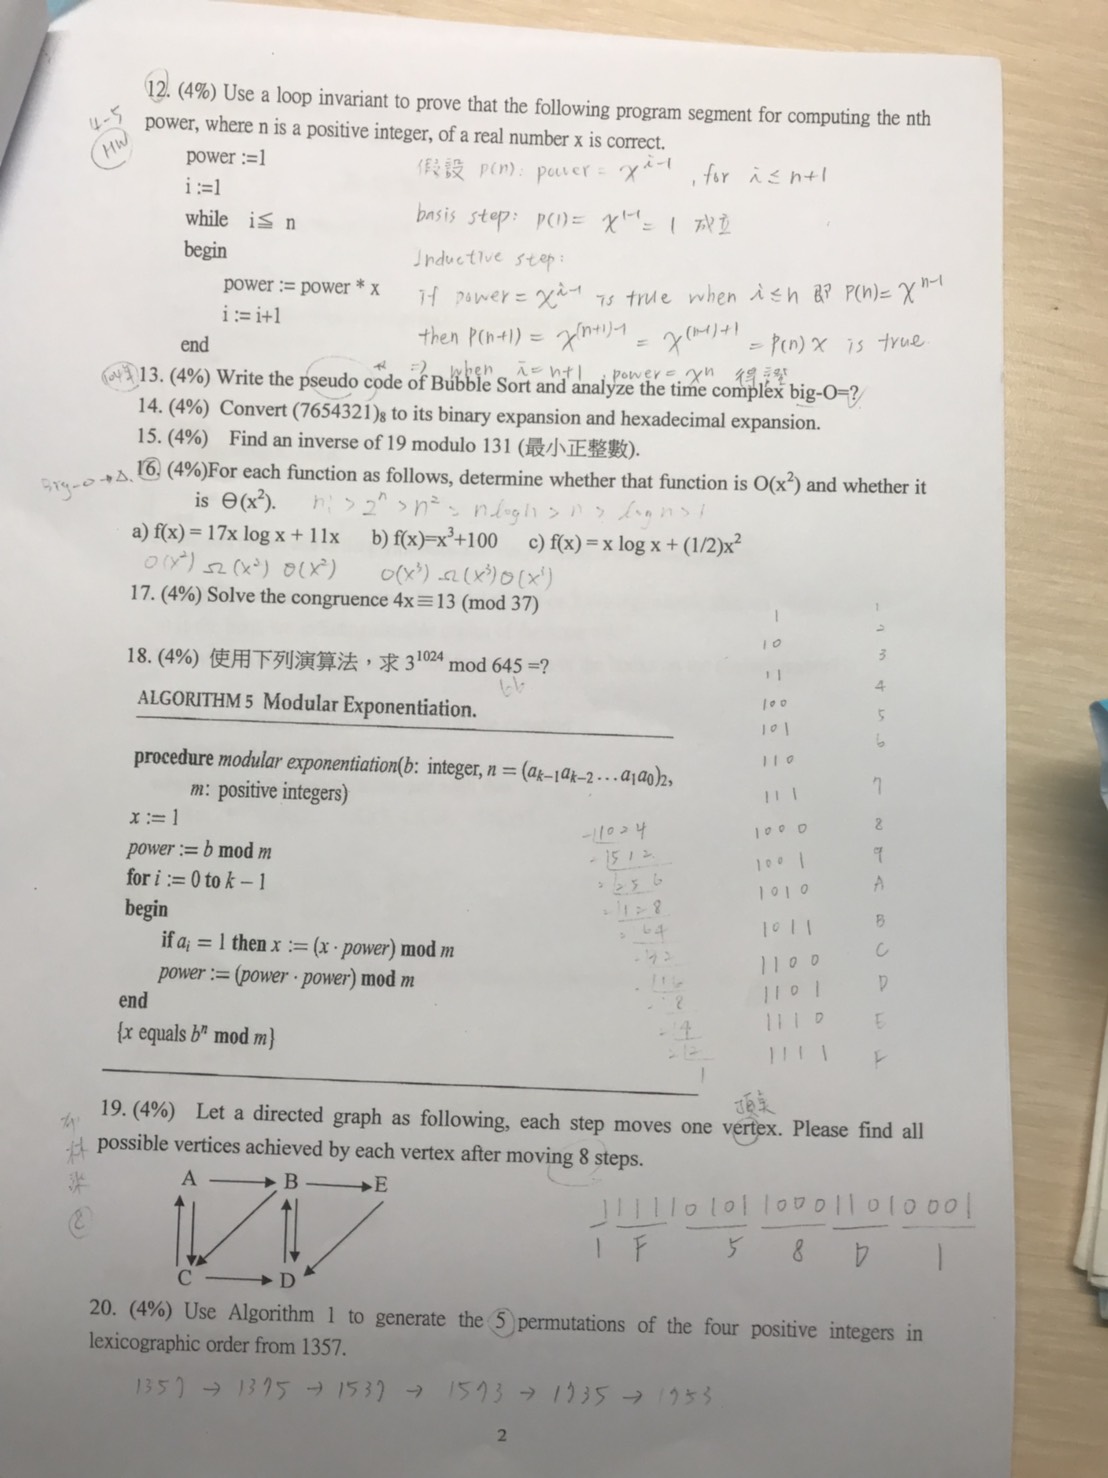 12. (4%) Use a loop invariant to prove that the following program segment for computing the nth
4-5
HW
power, where n is a positive integer, of a real number x is correct.
power :=1
假設 P(n): power = x^{i-1}, for i ≤ n+1
i :=1
while i≦ n
basis step: P(1) = x^{1-1} = 1 成立
begin
Inductive step:
power := power * x
if power = x^{i-1} is true when i≤n 即 P(n)= x^{n-1}
i := i+1
then P(n+1) = x^{(n+1)-1} = x^{(n-1)+1} = P(n) x is true.
end
⇒ when i = n+1, power = x^n 得證
13. (4%) Write the pseudo code of Bubble Sort and analyze the time complex big-O=?
14. (4%) Convert (7654321)₈ to its binary expansion and hexadecimal expansion.
15. (4%) Find an inverse of 19 modulo 131 (最小正整數).
Big-O
16. (4%)For each function as follows, determine whether that function is O(x²) and whether it
is Θ(x²).
n! > 2^n > n² > n log n > n > log n > 1
a) f(x) = 17x log x + 11x b) f(x)=x³+100 c) f(x) = x log x + (1/2)x²
O(x²) Ω(x²) Θ(x²) O(x³) Ω(x³) Θ(x³)
17. (4%) Solve the congruence 4x≡13 (mod 37)
18. (4%) 使用下列演算法，求 3^{1024} mod 645 =?
66
ALGORITHM 5 Modular Exponentiation.
procedure modular exponentiation(b: integer, n = (a_{k−1}a_{k−2} . . . a₁a₀)₂,
m: positive integers)
x := 1
power := b mod m
for i := 0 to k − 1
begin
if aᵢ = 1 then x := (x · power) mod m
power := (power · power) mod m
end
{x equals bⁿ mod m}
1 1
10 2
11 3
100 4
101 5
110 6
111 7
1000 8
1001 9
1010 A
1011 B
1100 C
1101 D
1110 E
1111 F
1024
512
256
128
64
32
16
8
4
2
1
頂點
19. (4%) Let a directed graph as following, each step moves one vertex. Please find all
possible vertices achieved by each vertex after moving 8 steps.
A B E
C D
111110101100011010001
1 F 5 8 D 1
20. (4%) Use Algorithm 1 to generate the 5 permutations of the four positive integers in
lexicographic order from 1357.
1357 → 1375 → 1537 → 1573 → 1735 → 1753
2